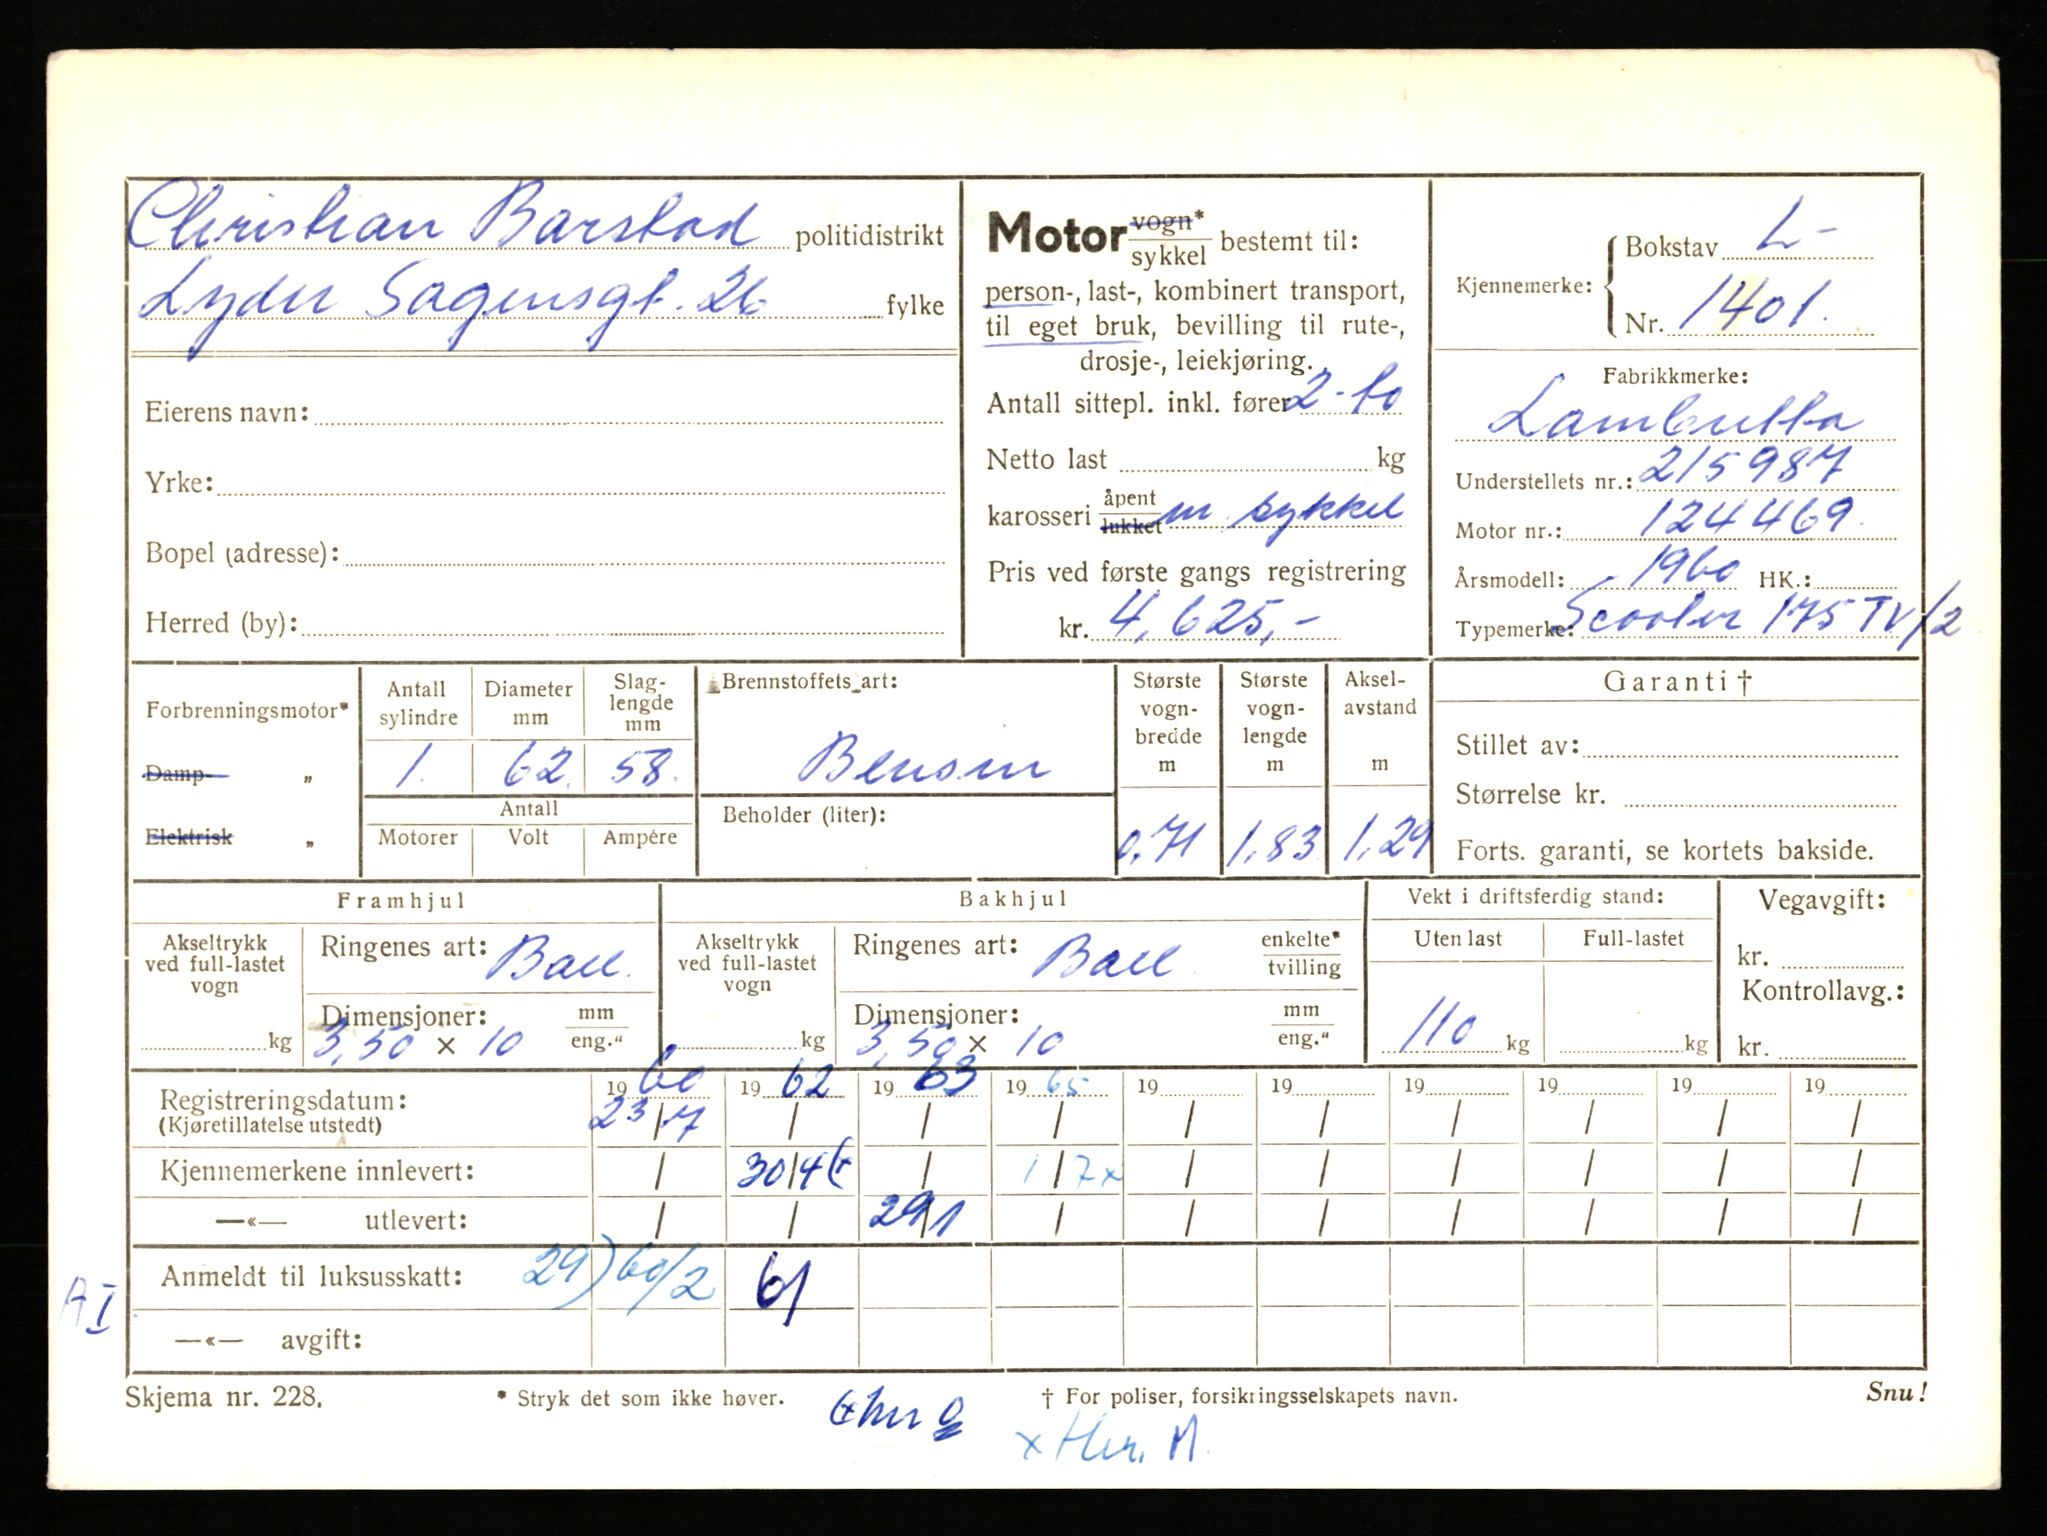 Christian Barstad politidistrikt
Lyder Sagensgt. 26 fylke
Eierens navn:
Yrke:
Bopel (adresse):
Herred (by):
Motor vogn* sykkel bestemt til:
person-, last-, kombinert transport,
til eget bruk, bevilling til rute-,
drosje-, leiekjøring.
Antall sittepl. inkl. fører 2-to
Netto last kg
karosseri åpent lukket m sykkel
Pris ved første gangs registrering
kr. 4,625,-
Kjennemerke:
Bokstav L-
Nr. 1401.
Fabrikkmerke:
Lambretta
Understellets nr.: 215987
Motor nr.: 124469
Årsmodell: 1960 HK.:
Typemerke: Scooter 175 TV/2
Forbrenningsmotor*
Damp- „
Elektrisk „
Antall sylindre
Diameter mm
Slag-lengde mm
1. 62. 58.
Antall
Motorer Volt Ampére
Brennstoffets art:
Bensin
Beholder (liter):
Største vogn-bredde m
Største vogn-lengde m
Aksel-avstand m
0,71 1,83 1,29
Garanti †
Stillet av:
Størrelse kr.
Forts. garanti, se kortets bakside.
Framhjul
Akseltrykk ved full-lastet vogn
kg
Ringenes art: Ball.
Dimensjoner: mm
3,50 × 10 eng."
Bakhjul
Akseltrykk ved full-lastet vogn
kg
Ringenes art: Ball enkelte* tvilling
Dimensjoner: mm
3,50 × 10 eng."
Vekt i driftsferdig stand:
Uten last Full-lastet
110 kg kg
Vegavgift:
kr.
Kontrollavg.:
kr.
19 60 19 62 19 63 19 65 19 19 19 19 19 19
Registreringsdatum: 23/7 / / / / / / / / /
(Kjøretillatelse utstedt)
Kjennemerkene innlevert: / 30/4 / 1/7x / / / / / /
—«— utlevert: / / 29/1 / / / / / / /
Anmeldt til luksusskatt: 29) 60/2 61
AI
—«— avgift:
Skjema nr. 228. * Stryk det som ikke høver. † For poliser, forsikringsselskapets navn. Snu!